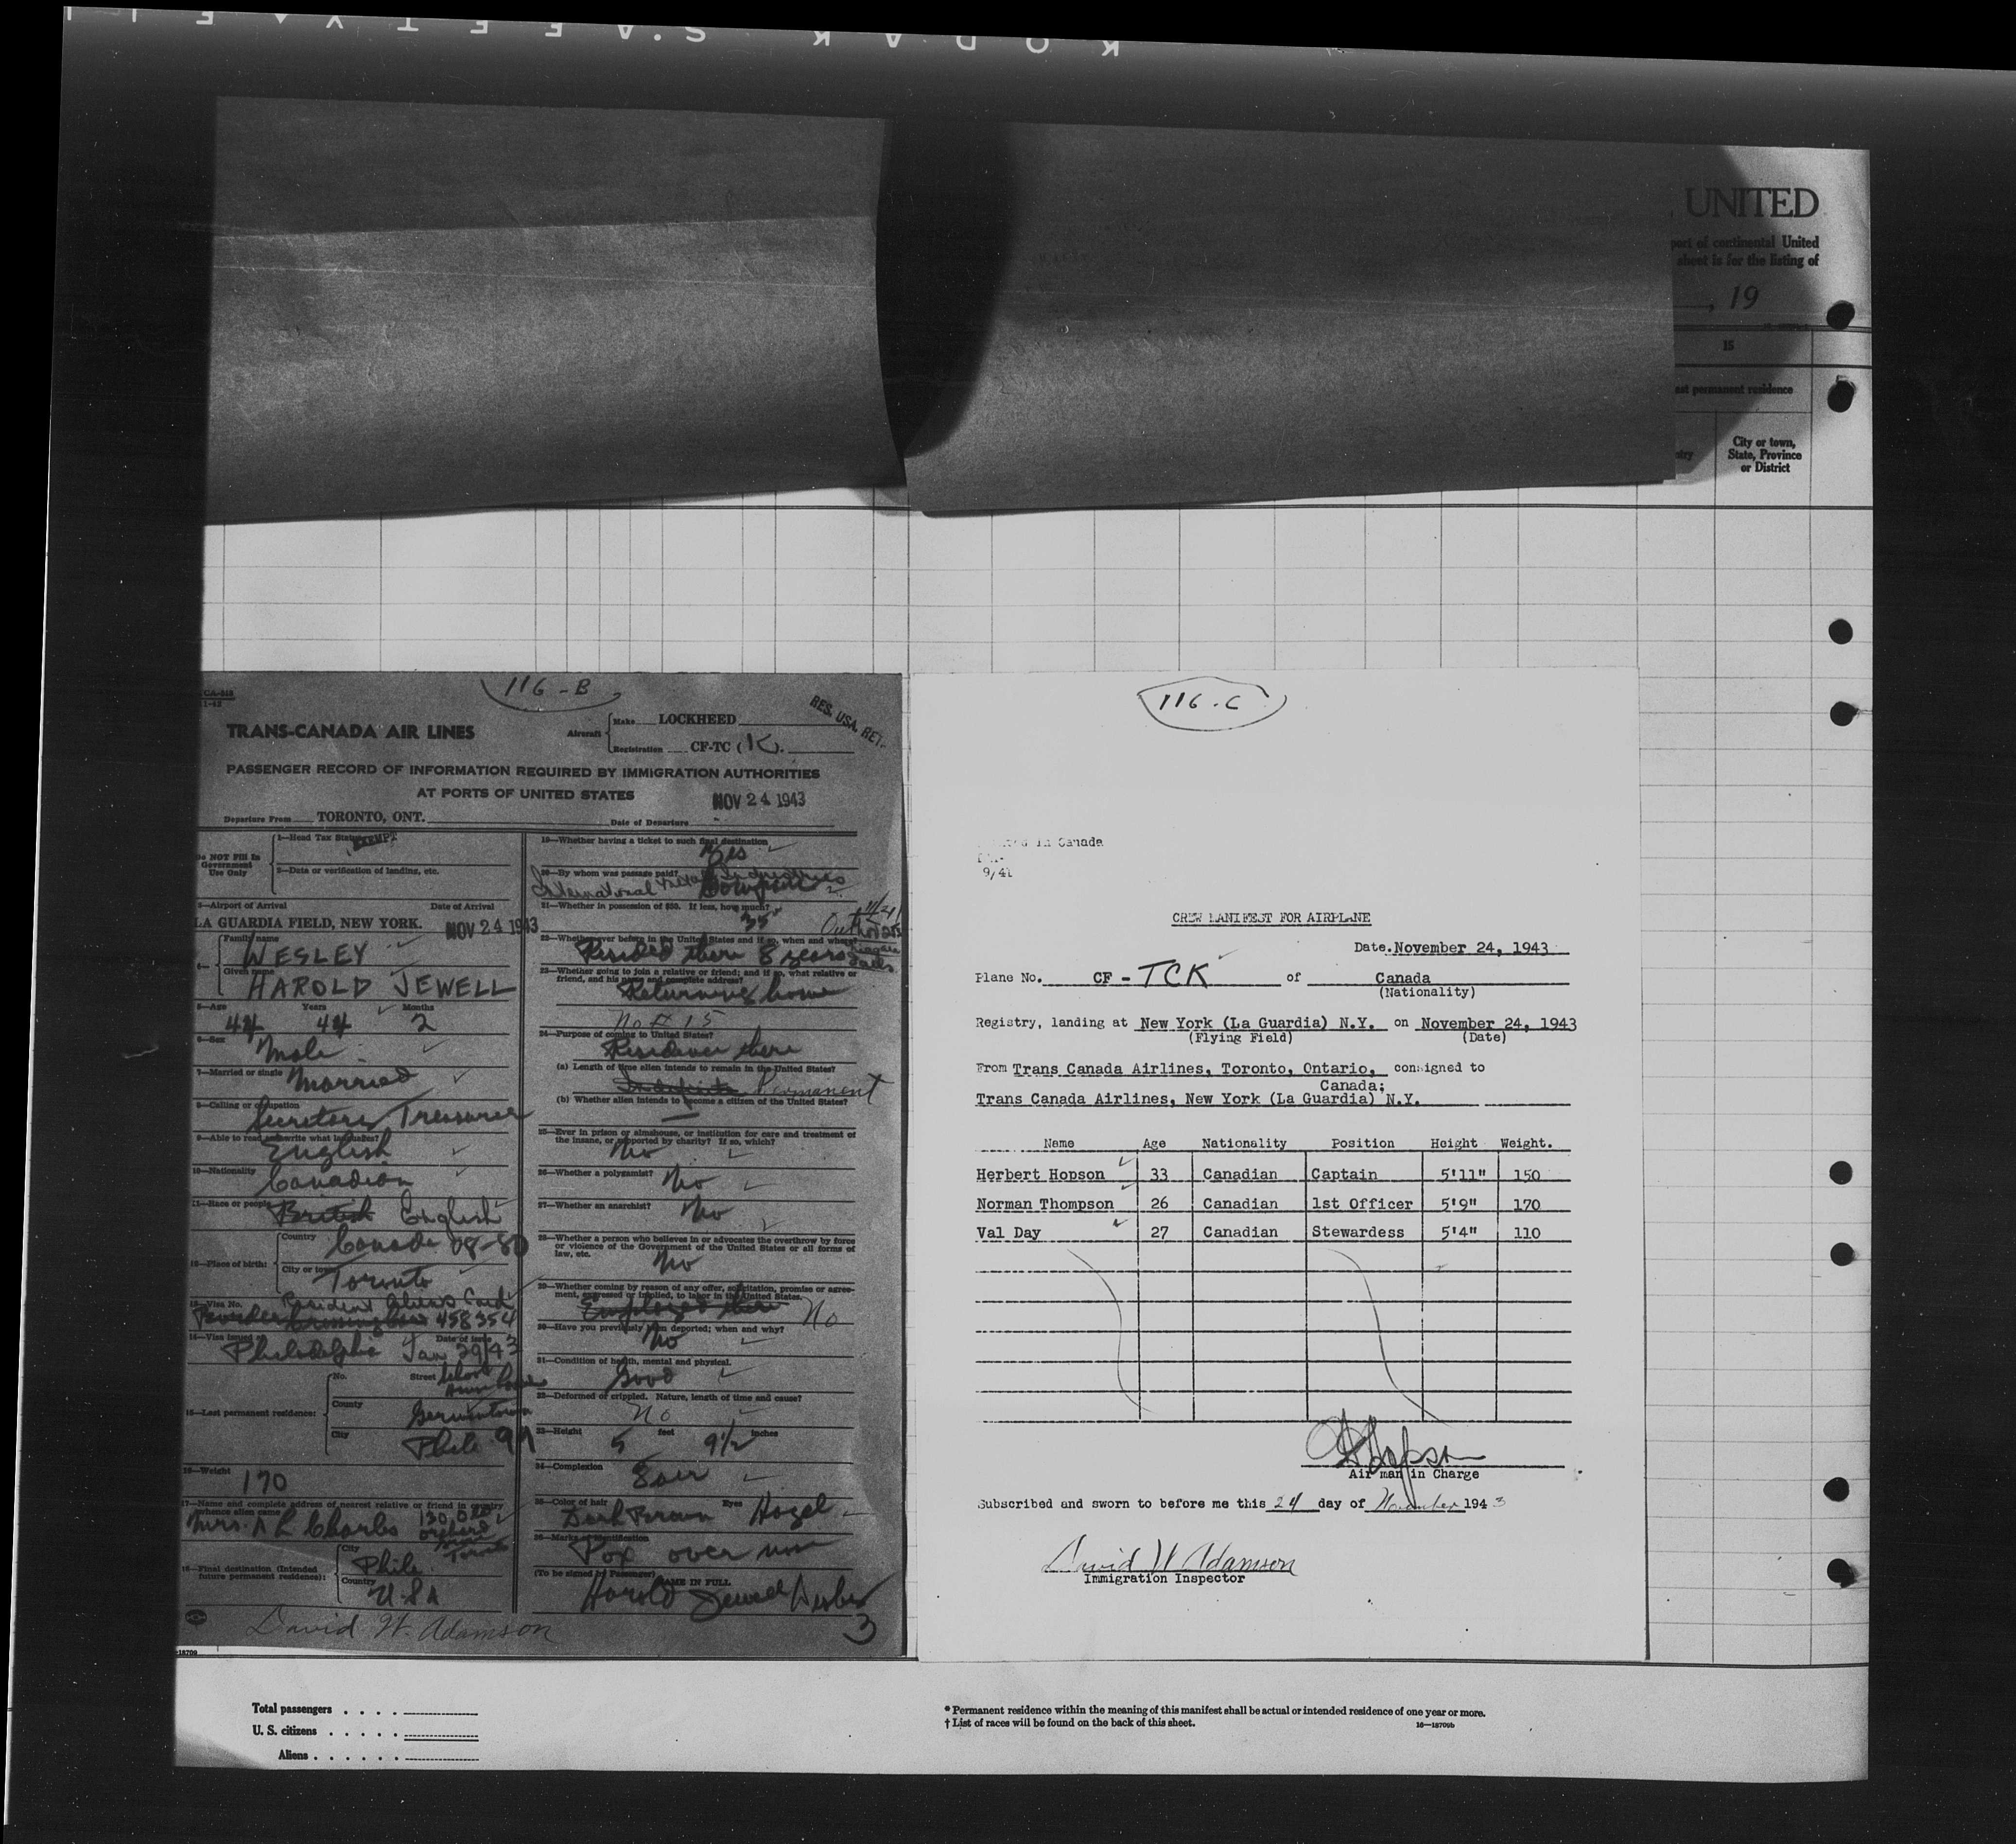 KODAK SAFETY FI
UNITED
port of continental United
sheet is for the listing of
, 19
15
permanent residence
City or town,
State, Province
or District
116-B
CA-
1-42
RES. USA. RET.
TRANS-CANADA AIR LINES
Aircraft
Make LOCKHEED
Registration CF-TC (K).
PASSENGER RECORD OF INFORMATION REQUIRED BY IMMIGRATION AUTHORITIES
AT PORTS OF UNITED STATES
NOV 24 1943
Departure From TORONTO, ONT.
Date of Departure "
Do NOT Fill In
Government
Use Only
1—Head Tax Status EXEMPT
2—Date or verification of landing, etc.
3—Airport of Arrival Date of Arrival
LA GUARDIA FIELD, NEW YORK. NOV 24 1943
4— Family name
WESLEY
Given name
HAROLD JEWELL
5—Age Years Months
44 44 2
6—Sex
Male
7—Married or single Married
8—Calling or occupation
Secretary Treasurer
9—Able to read and write what languages?
English
10—Nationality
Canadian
11—Race or people British English
12—Place of birth:
Country
Canada 08-80
City or town
Toronto
13—Visa No. Resident Alien's Card
Border Crossing 458354
14—Visa issued at Date of issue
Philadelphia Jan 29/43
15—Last permanent residence:
No. Street
County
Germantown
City
Phila 99
16—Weight
170
17—Name and complete address of nearest relative or friend in country
whence alien came
Mrs. A L Charles 130
Orchard
Toronto
18—Final destination (Intended
future permanent residence):
City
Phila
Country
U.S.A
David W. Adamson
19—Whether having a ticket to such final destination
Yes
20—By whom was passage paid?
International Industries
Company
21—Whether in possession of $50. If less, how much?
35
22—Whether ever before in the United States and if so, when and where?
Resided there 8 years
Niagara
Falls
23—Whether going to join a relative or friend; and if so, what relative or
friend, and his name and complete address?
Returning home
No # 15
24—Purpose of coming to United States?
Residence there
(a) Length of time alien intends to remain in the United States?
Indefinite Permanent
(b) Whether alien intends to become a citizen of the United States?
—
25—Ever in prison or almshouse, or institution for care and treatment of
the insane, or supported by charity? If so, which?
No
26—Whether a polygamist? No
27—Whether an anarchist? No
28—Whether a person who believes in or advocates the overthrow by force
or violence of the Government of the United States or all forms of
law, etc.
No
29—Whether coming by reason of any offer, solicitation, promise or agree-
ment, expressed or implied, to labor in the United States.
Employed there No
30—Have you previously been deported; when and why?
No
31—Condition of health, mental and physical.
Good
32—Deformed or crippled. Nature, length of time and cause?
No
33—Height 5 feet 9½ inches
34—Complexion
Fair
35—Color of hair Eyes
Dark Brown Hazel
36—Marks of identification
Pox over nose
(To be signed by Passenger) NAME IN FULL
Harold Jewell Wesley
3
116-C
in Canada
9/41
CREW MANIFEST FOR AIRPLANE
Date. November 24, 1943
Plane No. CF - TCK of Canada
(Nationality)
Registry, landing at New York (La Guardia) N.Y. on November 24, 1943
(Flying Field) (Date)
From Trans Canada Airlines, Toronto, Ontario, consigned to
Canada;
Trans Canada Airlines, New York (La Guardia) N.Y.
Name Age Nationality Position Height Weight.
Herbert Hopson 33 Canadian Captain 5'11" 150
Norman Thompson 26 Canadian 1st Officer 5'9" 170
Val Day 27 Canadian Stewardess 5'4" 110
H Hopson
Air man in Charge
Subscribed and sworn to before me this 24 day of November 1943
David W Adamson
Immigration Inspector
Total passengers
U. S. citizens
Aliens
* Permanent residence within the meaning of this manifest shall be actual or intended residence of one year or more.
† List of races will be found on the back of this sheet.
16—18709b